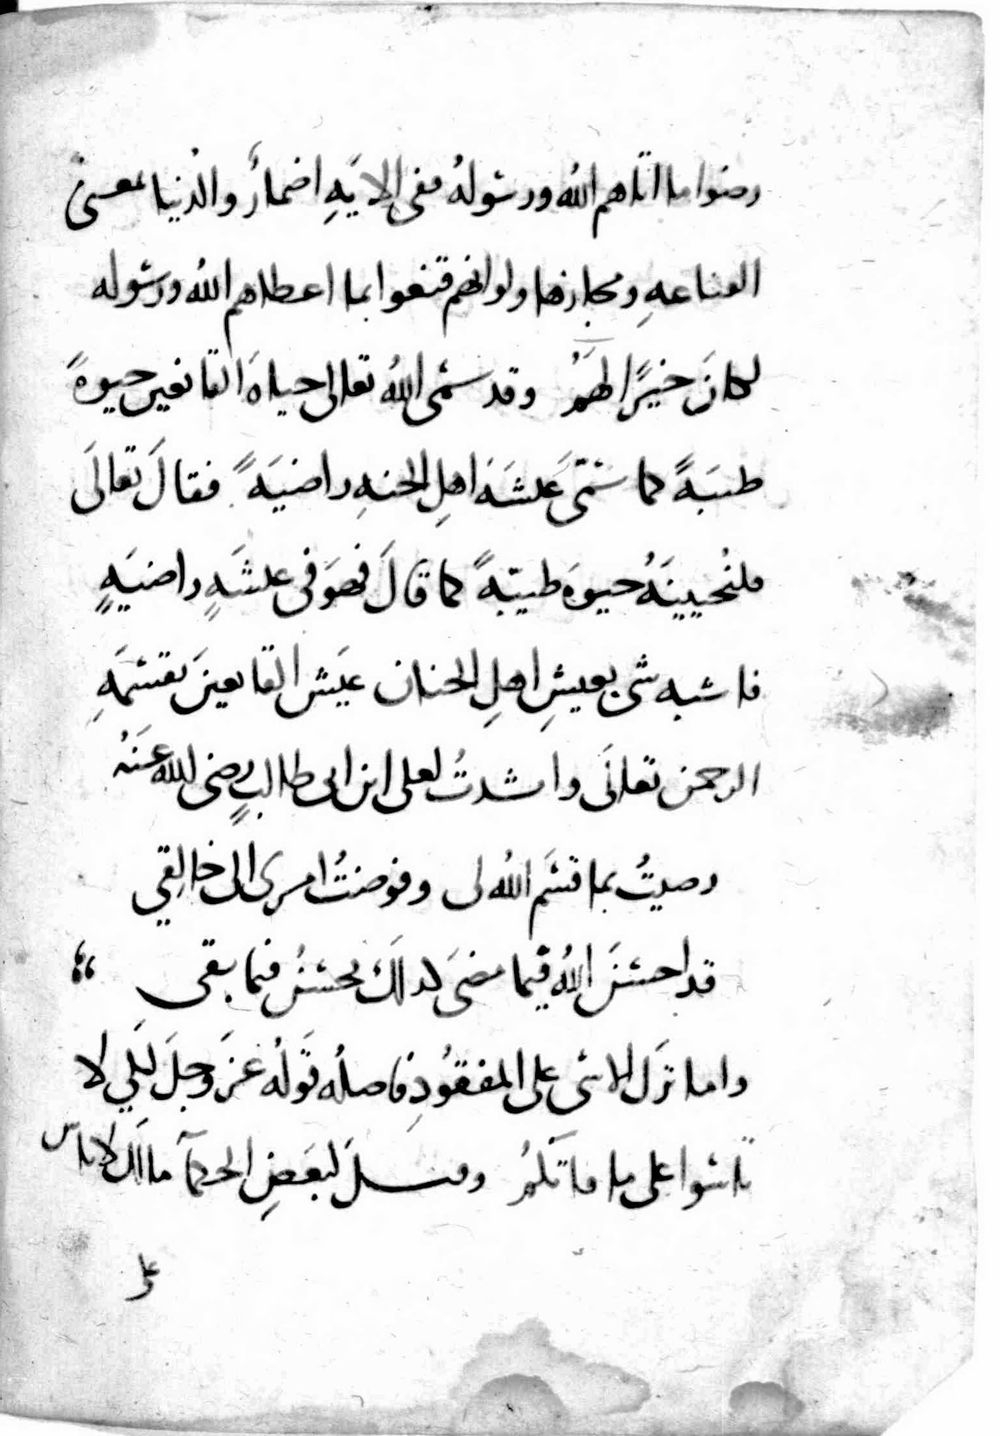 رضوا ما اتاهم الله ورسولهُ ففى الايَهِ اضمارٌ والدُنيا بمعنى
القناعهِ ومجازها ولو انهم قنعوا بما اعطاهم الله ورسوله
لكانَ خيرًا لهَمُ وقد سمّى اللهُ تعالى حياهَ القانعين حيوهً
طيبَهً كما سَمّىَ عيشَهَ اهلِ الجنهِ راضيَهً فقالَ تعالَى
فلنُحيينَهُ حيوهَ طيّبهً كما قالَ فهوَ فى عيشَهٍ راضيَهٍ
فاشبه شى بعيشِ اهلِ الجنان عيَش القانعينَ بقسمَهِ
الرحمن تعالَى وانشدتُ لعلى ابن ابى طالبٍ رضى الله عنَهُ
رضيتُ بما قسَم اللهُ لى وفوضتُ امرى الى خالِقي
قد احسنَ اللهُ فيما مضىَ كذلَك يحسنُ فيما بقى
واما تَرك الاسَى على المفقوُدِ فاصلُه قَولُه عَزَ وجلَ لِكَي لا
تاسَوا على ما فاتَكمُ وقيلَ لبعَضِ الحكمآ مالَك لا تاس
على